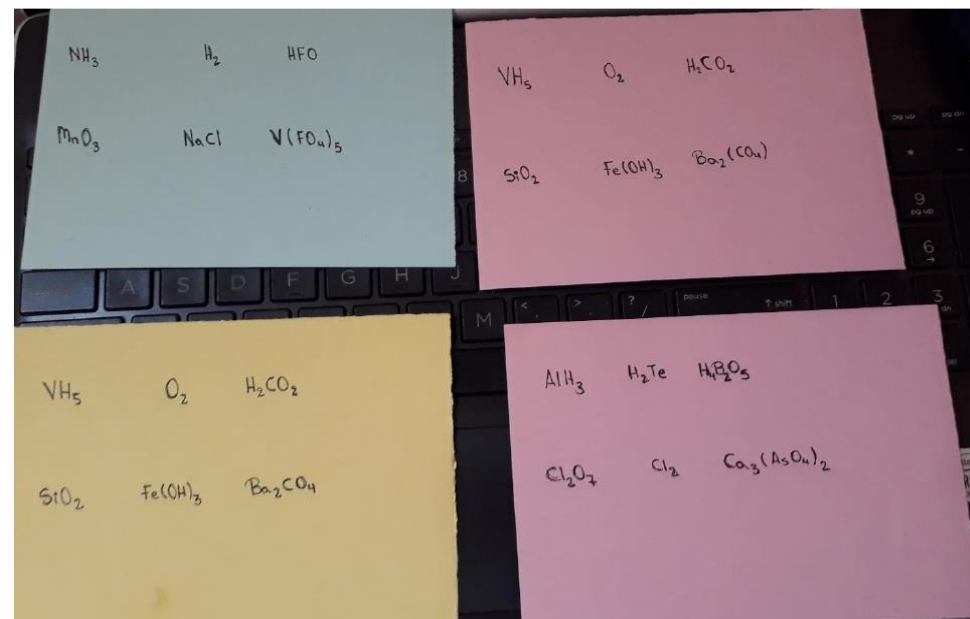 NH₃ H₂ HFO
MnO₃ NaCl V(FO₄)₅
VH₅ O₂ H₂CO₂
SiO₂ Fe(OH)₃ Ba₂(CO₄)
pg up pg dn
* -
8
9
pg up
6
→
A S D F G H J
M < , > . ? / pause ⇑ shift 1 2 3
VH₅ O₂ H₂CO₂
SiO₂ Fe(OH)₃ Ba₂CO₄
AlH₃ H₂Te H₄B₂O₅
Cl₂O₇ Cl₂ Ca₃(AsO₄)₂